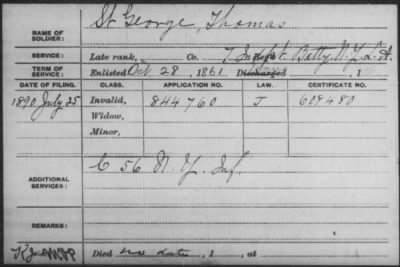 NAME OF SOLDIER: St. George, Thomas
SERVICE: Late rank, Co. 7 Indpt. Batty. N.Y. L. A.
TERM OF SERVICE: Enlisted Oct. 28, 1861 Discharged , 1
DATE OF FILING. CLASS. APPLICATION NO. LAW. CERTIFICATE NO.
1890 July 25 Invalid, 844760 J 609480
Widow,
Minor,
ADDITIONAL SERVICES: C 56 N.Y. Inf.
REMARKS:
Died no date, 1 , at